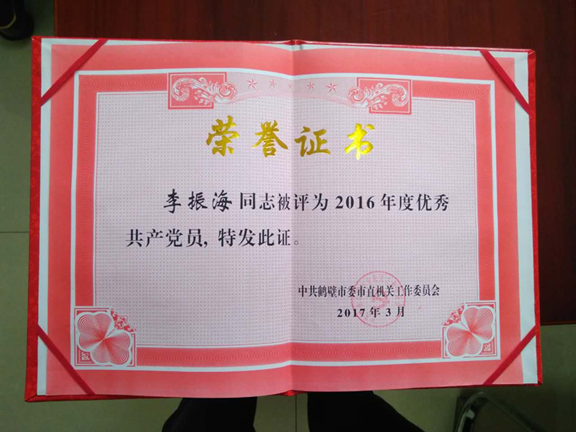 荣誉证书
李振海同志被评为2016年度优秀
共产党员,特发此证。
中共鹤壁市委市直机关工作委员会
2017年3月